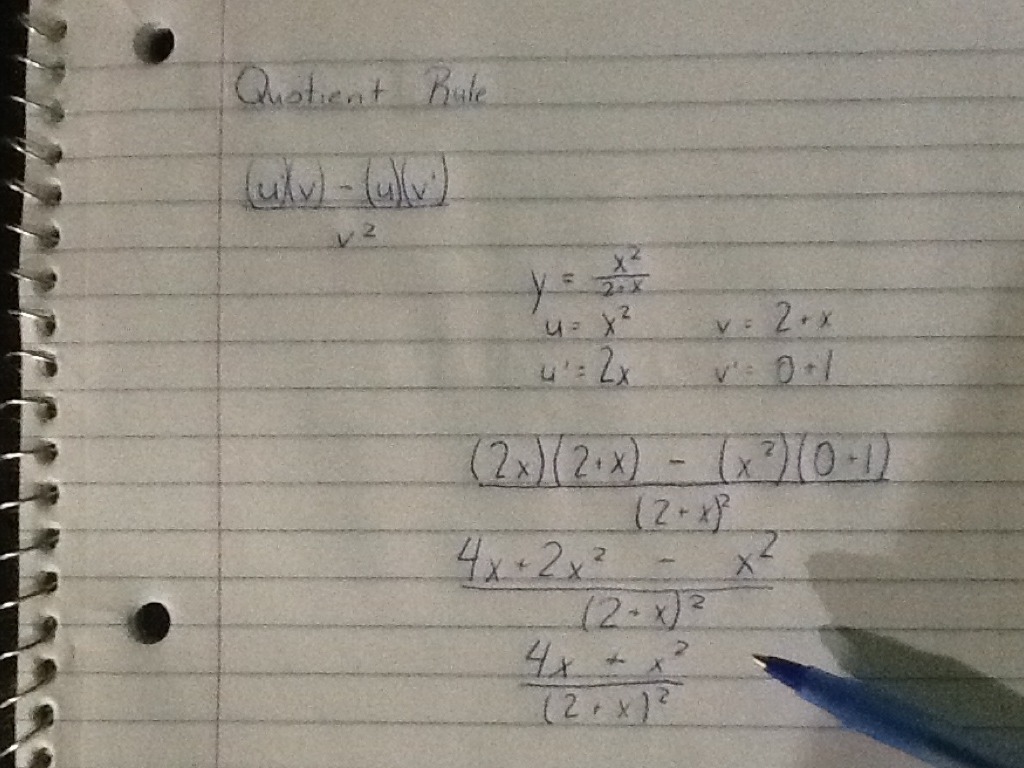 Quotient Rule
(u')(v) - (u)(v')
v²
y = x²
2+x
u = x² v = 2+x
u' = 2x v' = 0+1
(2x)(2+x) - (x²)(0+1)
(2+x)²
4x+2x² - x²
(2+x)²
4x + x²
(2+x)²